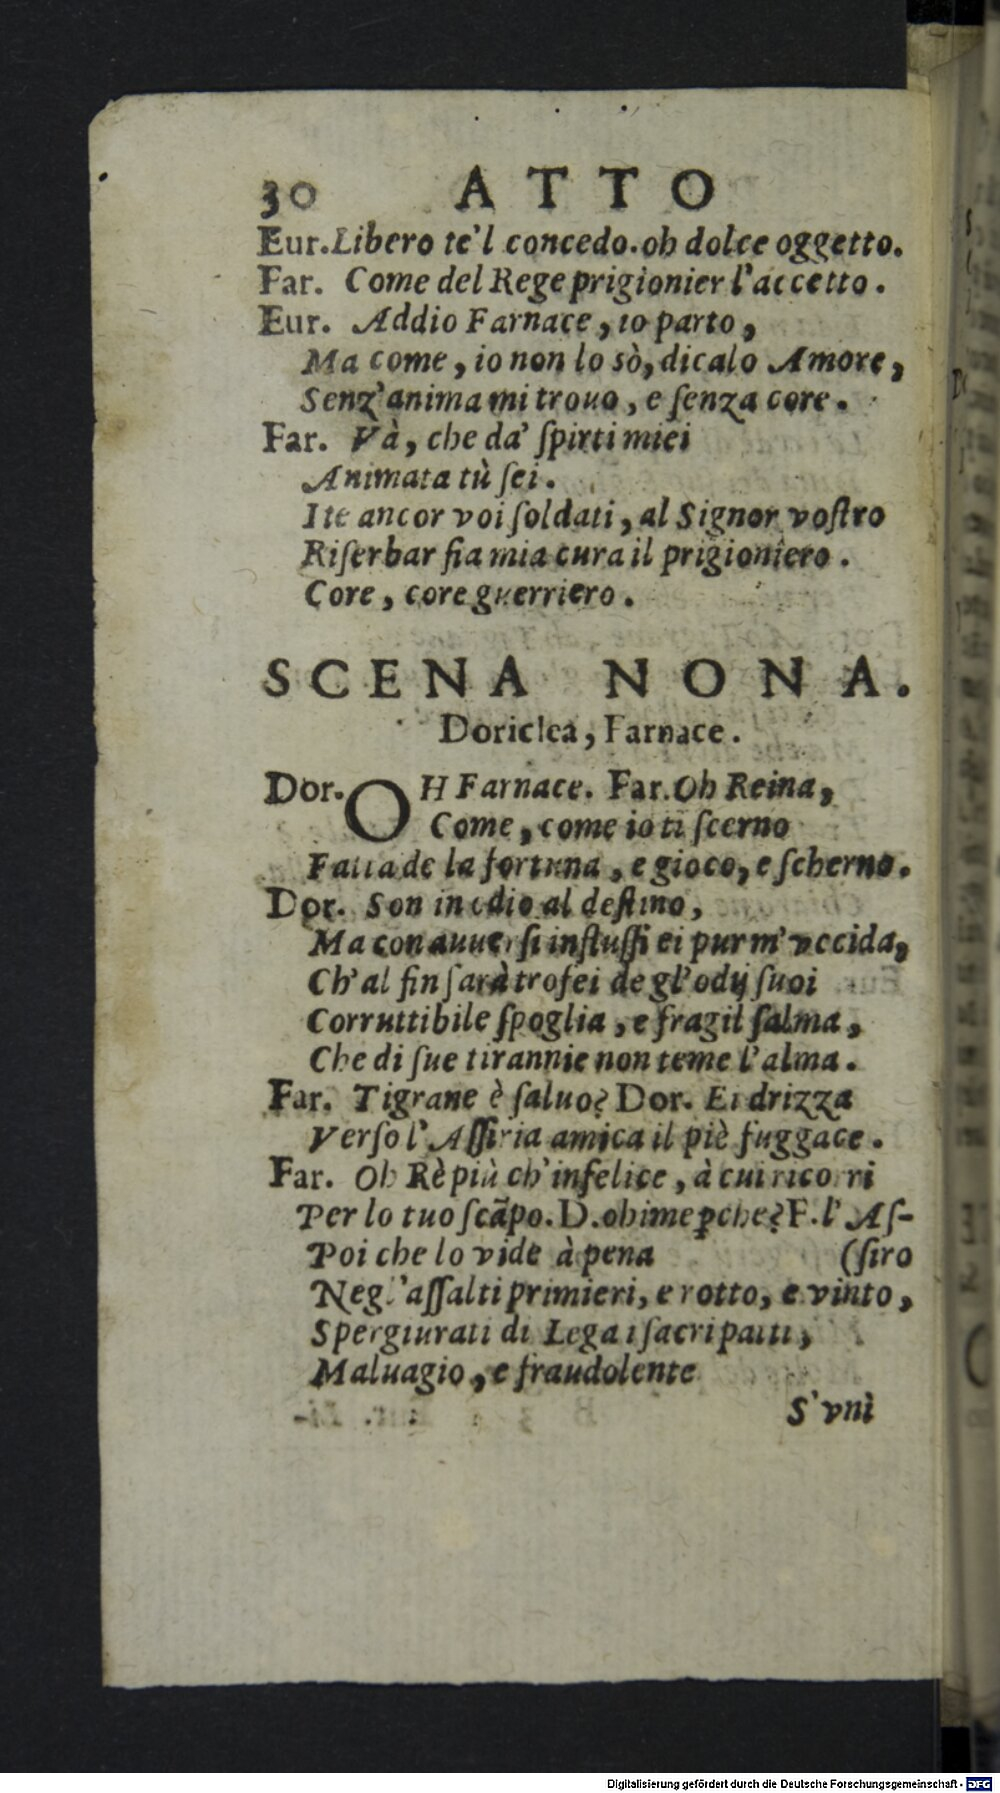 30 ATTO
Eur. Libero te'l concedo. oh dolce oggetto.
Far. Come del Rege prigionier l'accetto.
Eur. Addio Farnace, io parto,
Ma come, io non lo sò, dicalo Amore,
Senz'anima mi trouo, e ſenza core.
Far. Và, che da' ſpirti miei
Animata tù ſei.
Ite ancor voi ſoldati, al Signor voſtro
Riſerbar fia mia cura il prigioniero.
Core, core guerriero.
SCENA NONA.
Doriclea, Farnace.
Dor. OH Farnace. Far. Oh Reina,
Come, come io ti ſcerno
Fatta de la fortuna, e gioco, e ſcherno.
Dor. Son in odio al deſtino,
Ma con auuerſi influſſi ei pur m'vccida,
Ch'al fin ſarà trofei de gl'odij ſuoi
Corruttibile ſpoglia, e fragil ſalma,
Che di ſue tirannie non teme l'alma.
Far. Tigrane è ſaluo? Dor. Ei drizza
Verſo l'Aſſiria amica il piè fuggace.
Far. Oh Rè più ch'infelice, à cui ricorri
Per lo tuo ſcãpo. D. ohime ꝑche? F. l'Aſ-
Poi che lo vide à pena (ſiro
Negl'aſſalti primieri, e rotto, e vinto,
Spergiurati di Lega i ſacri patti,
Maluagio, e fraudolente
S'vnì
Digitalisierung gefördert durch die Deutsche Forschungsgemeinschaft - DFG